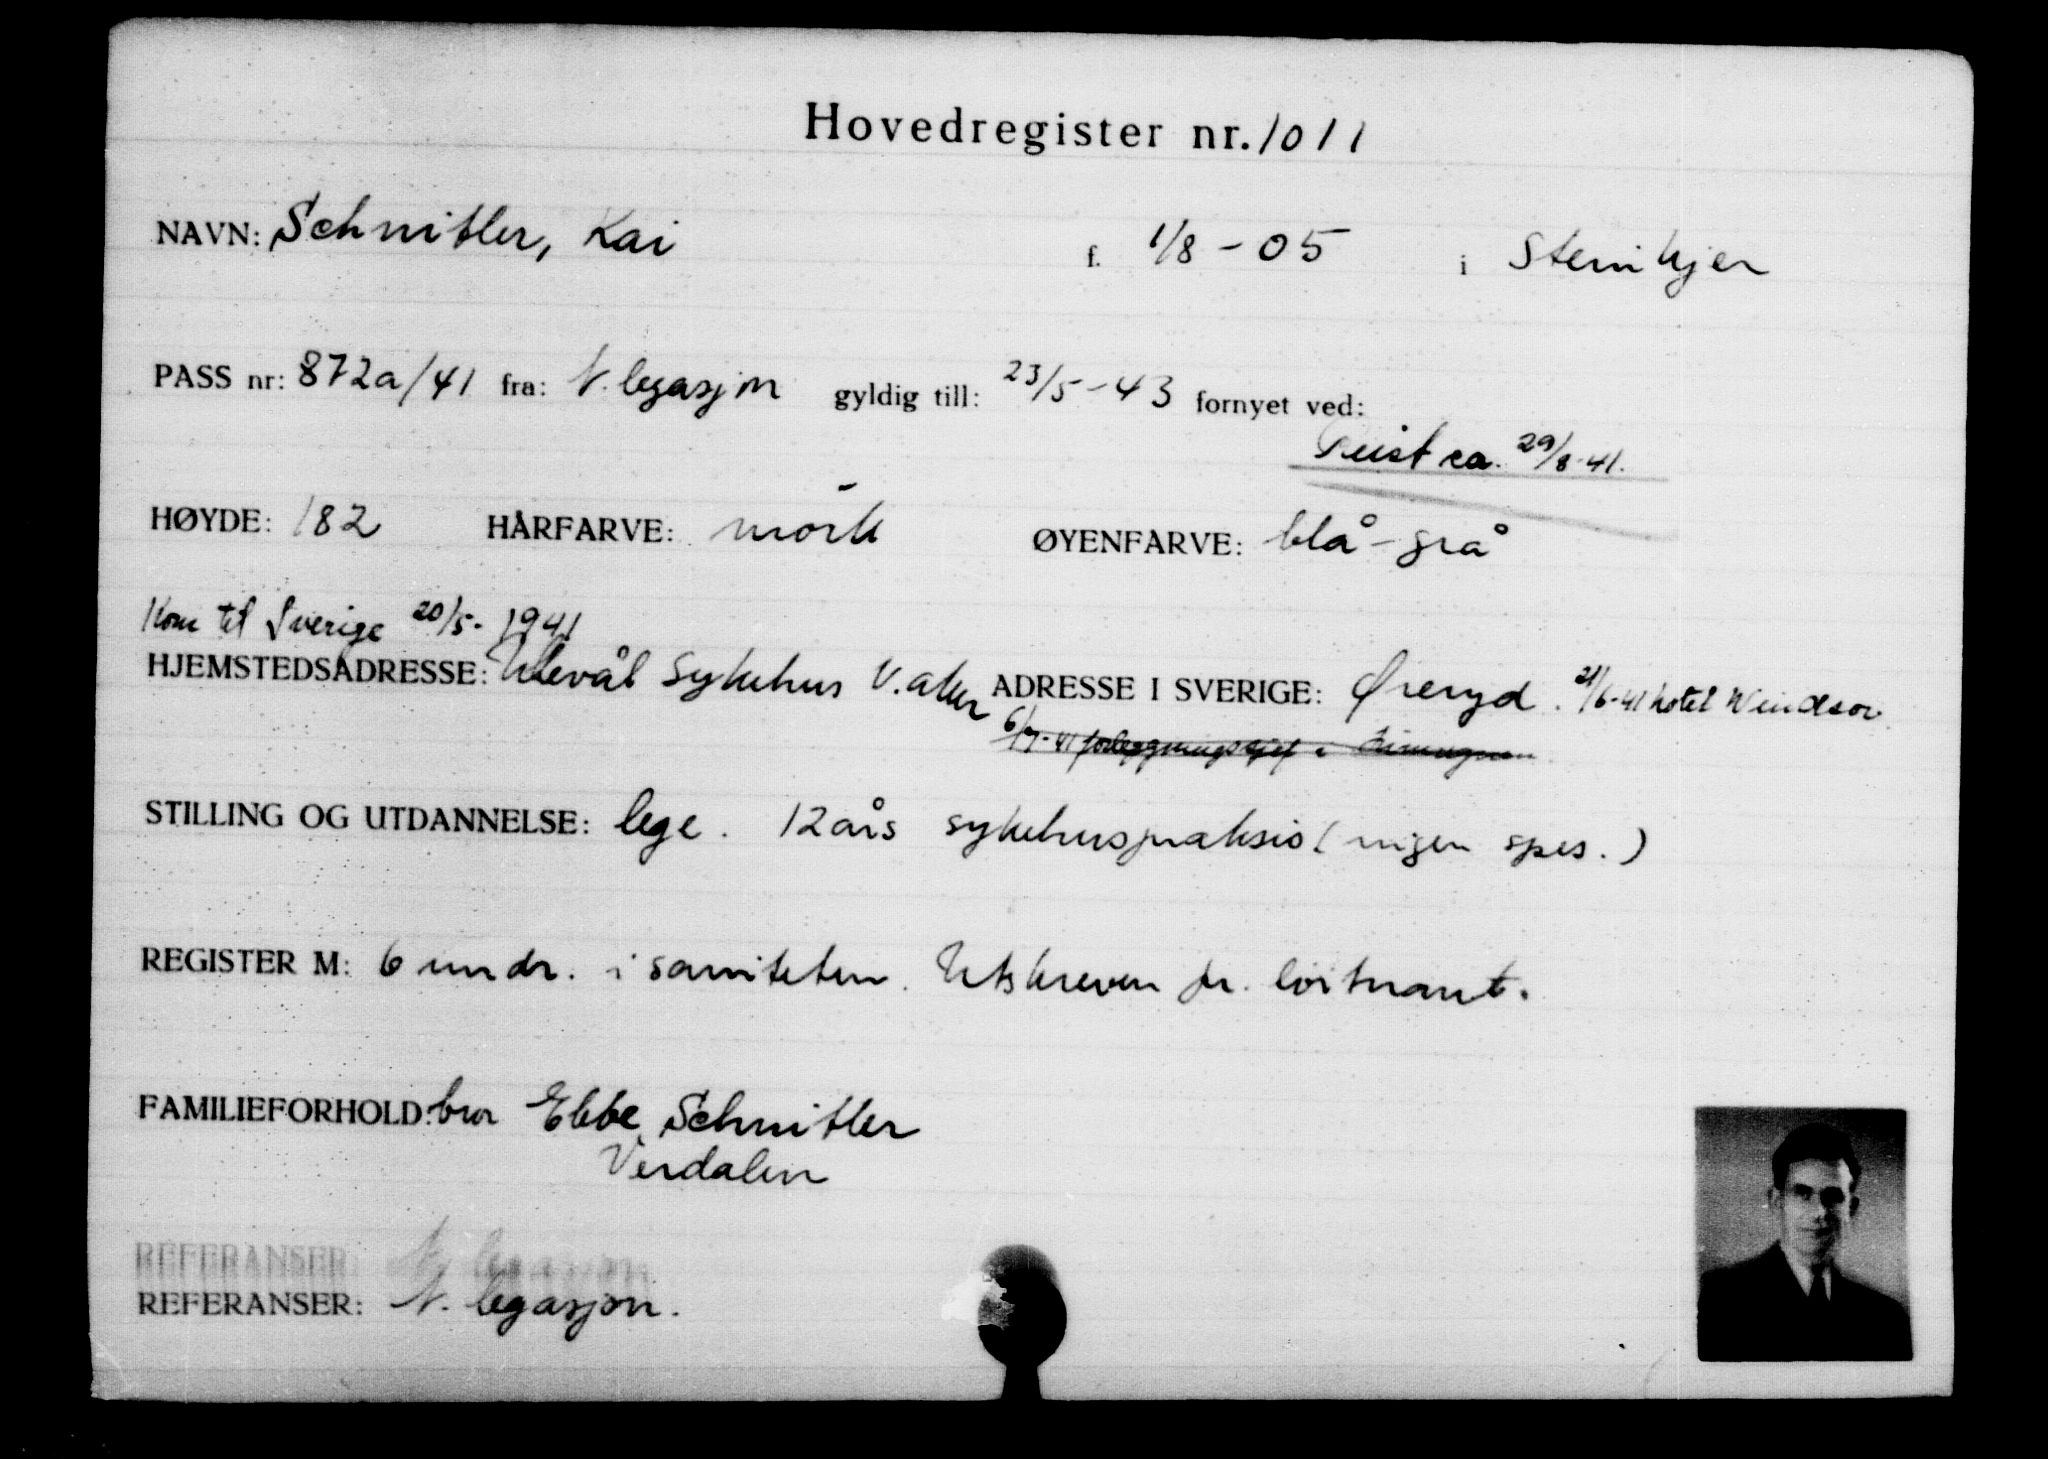 Hovedregister nr. 1011
NAVN: Schnitler, Kai f. 1/8 - 05 i Steinkjer
PASS nr: 872a/41 fra: N. legasjon gyldig till: 23/5 - 43 fornyet ved:
Reist ca. 29/8-41.
HØYDE: 182 HÅRFARVE: mörk ØYENFARVE: blå-grå
Kom til Sverige 20/5 - 1941
HJEMSTEDSADRESSE: Ulevål sykehus V. aker ADRESSE I SVERIGE: Øreryd. 21/6-41 hotel Windsor
6/7-41 forlegningssjef i
STILLING OG UTDANNELSE: lege. 12 års sykehuspraksis (ingen spes.)
REGISTER M: 6 undr. i saniteten. Utskreven fr. löitnant.
FAMILIEFORHOLD: bror Ebbe Schnitler
Verdalen
REFERANSER: N. legasjon
REFERANSER: N. legasjon.